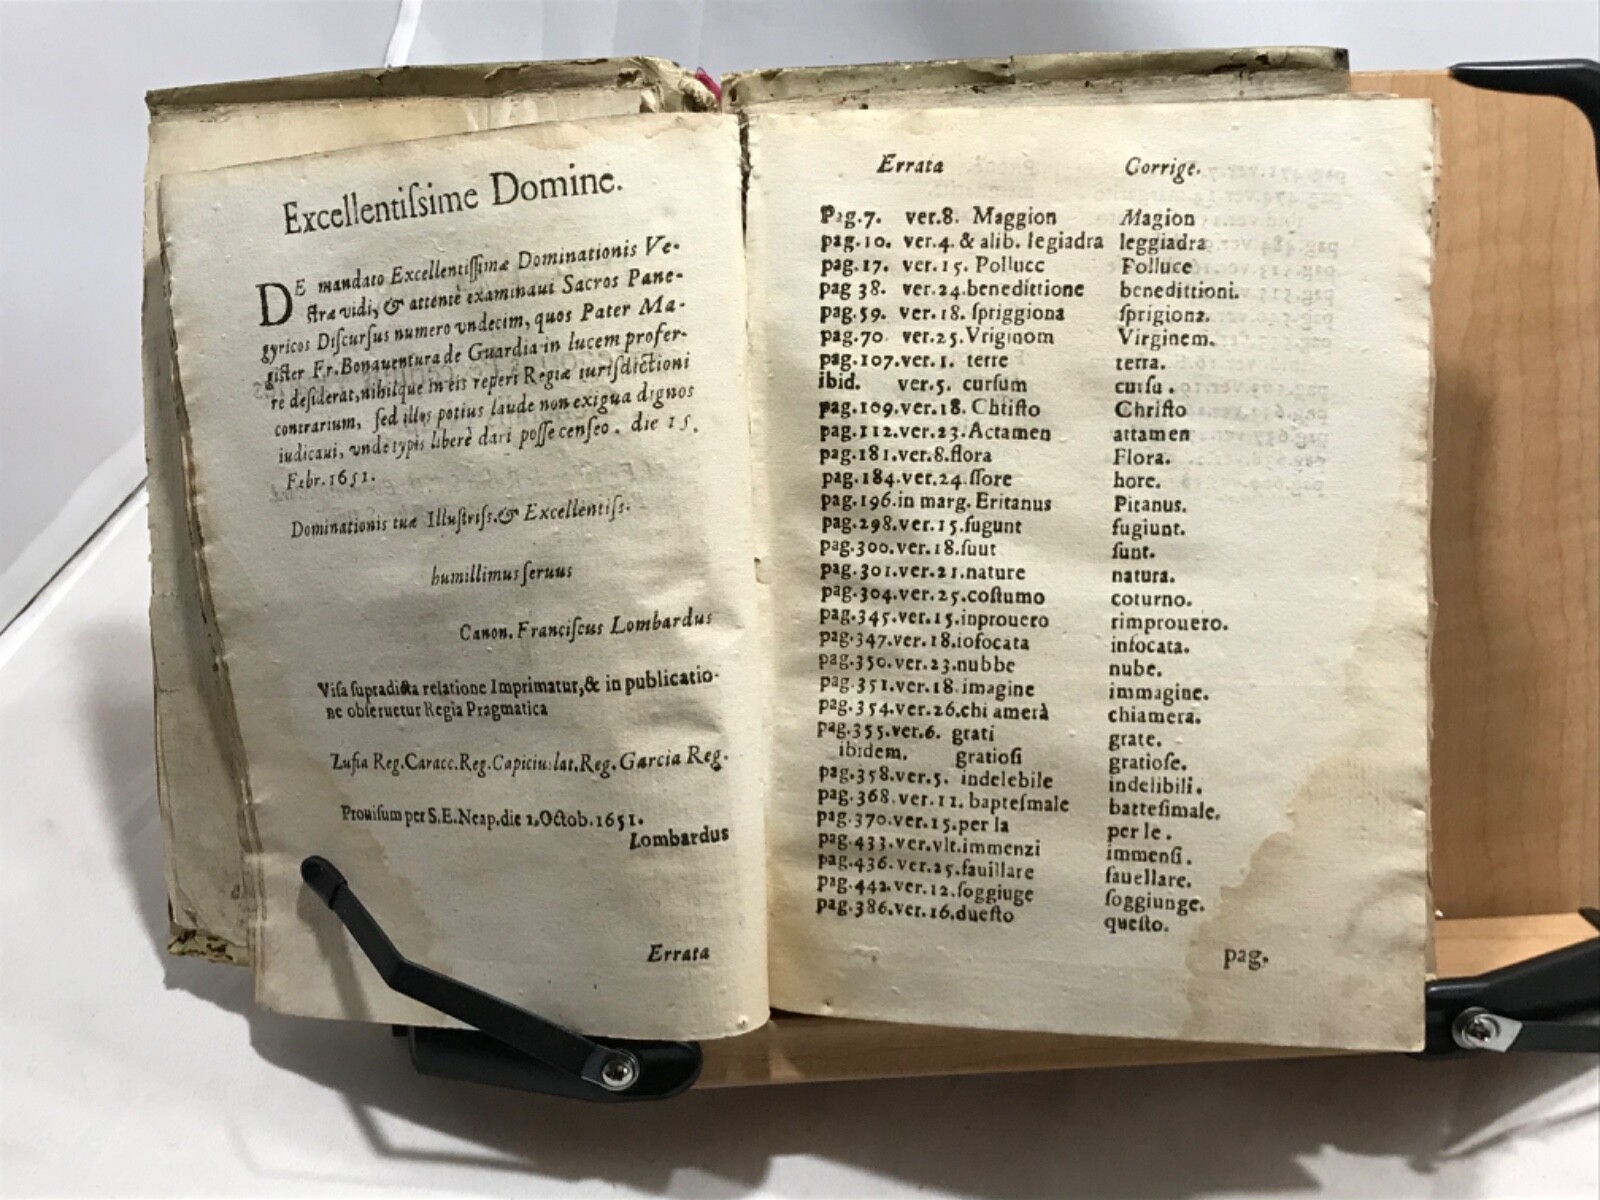 Excellentiſsime Domine.
DE mandato Excellentiſſimæ Dominationis Ve-
ſtræ vidi, & attentè examinaui Sacros Pane-
gyricos Diſcurſus numero vndecim, quos Pater Ma-
giſter Fr. Bonauentura de Guardia in lucem profer-
re deſiderat, nihilque in eis reperi Regiæ iuriſdictioni
contrarium, ſed illos potius laude non exigua dignos
iudicaui, vnde typis liberè dari poſſe cenſeo. die 15.
Febr. 1651.
Dominationis tuæ Illuſtriſs. & Excellentiſs.
humillimus ſeruus
Canon. Franciſcus Lombardus
Viſa ſupradicta relatione Imprimatur, & in publicatio-
ne obſeruetur Regia Pragmatica
Zufia Reg. Caracc. Reg. Capiciuslat. Reg. Garcia Reg.
Prouiſum per S.E. Neap. die 2. Octob. 1651.
Lombardus
Errata
Errata Corrige.
Pag.7. ver.8. Maggion Magion
pag.10. ver.4. & alib. legiadra leggiadra
pag.17. ver.15. Pollucc Folluce
pag 38. ver.24. benedittione benedittioni.
pag.59. ver.18. ſpriggiona ſprigiona.
pag.70 ver.25. Vriginom Virginem.
pag.107. ver.1. terre terra.
ibid. ver.5. curſum curſu.
pag.109. ver.18. Chtiſto Chriſto
pag.112. ver.23. Actamen attamen
pag.181. ver.8. flora Flora.
pag.184. ver.24. ſſore hore.
pag.196. in marg. Eritanus Pitanus.
pag.298. ver.15. fugunt fugiunt.
pag.300. ver.18. ſuut ſunt.
pag.301. ver.21. nature natura.
pag.304. ver.25. coſtumo coturno.
pag.345. ver.15. inprouero rimprouero.
pag.347. ver.18. iofocata infocata.
pag.350. ver.23. nubbe nube.
pag.351. ver.18. imagine immagine.
pag.354. ver.26. chi amerà chiamera.
pag.355. ver.6. grati grate.
ibidem. gratioſi gratioſe.
pag.358. ver.5. indelebile indelibili.
pag.368. ver.11. bapteſmale batteſimale.
pag.370. ver.15. per la per le.
pag.433. ver.vlt. immenzi immenſi.
pag.436. ver.25. fauillare fauellare.
pag.442. ver.12. ſoggiuge ſoggiunge.
pag.386. ver.16. dueſto queſto.
pag.